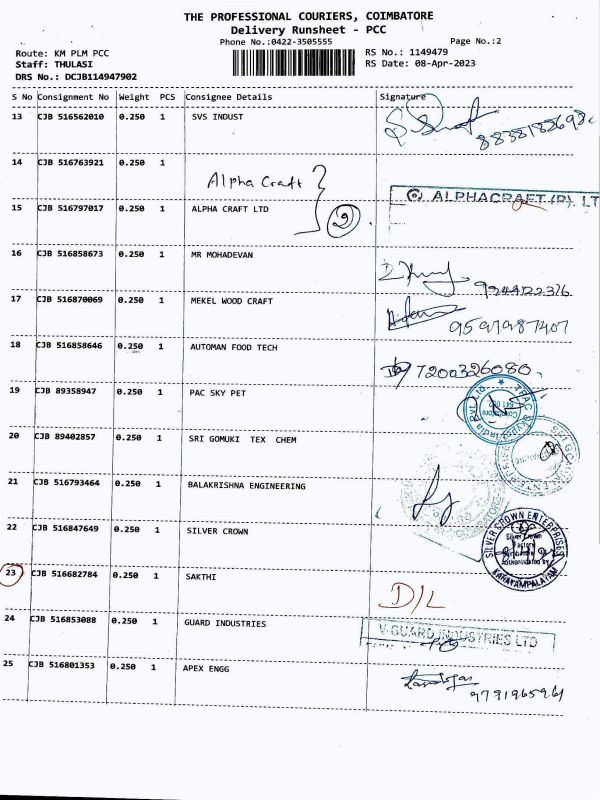 THE PROFESSIONAL COURIERS, COIMBATORE
Delivery Runsheet - PCC
Phone No.:0422-3505555
Page No.:2
Route: KM PLM PCC
RS No.: 1149479
Staff: THULASI
RS Date: 08-Apr-2023
DRS No.: DCJB114947902
S No Consignment No Weight PCS Consignee Details Signature
13 CJB 516562010 0.250 1 SVS INDUST
8838188698
14 CJB 516763921 0.250 1
Alpha Craft
2
ALPHACRAFT (P). LT
15 CJB 516797017 0.250 1 ALPHA CRAFT LTD
16 CJB 516858673 0.250 1 MR MOHADEVAN
17 CJB 516870069 0.250 1 MEKEL WOOD CRAFT
9597987407
18 CJB 516858646 0.250 1 AUTOMAN FOOD TECH
7200326080
19 CJB 89358947 0.250 1 PAC SKY PET
20 CJB 89402857 0.250 1 SRI GOMUKI TEX CHEM
21 CJB 516793464 0.250 1 BALAKRISHNA ENGINEERING
22 CJB 516847649 0.250 1 SILVER CROWN
SILVER CROWN ENTERPRISES
Silver Crown
KARAYAMPALAYAM
23 CJB 516682784 0.250 1 SAKTHI
D/L
24 CJB 516853088 0.250 1 GUARD INDUSTRIES
V-GUARD INDUSTRIES LTD
25 CJB 516801353 0.250 1 APEX ENGG
9791965961